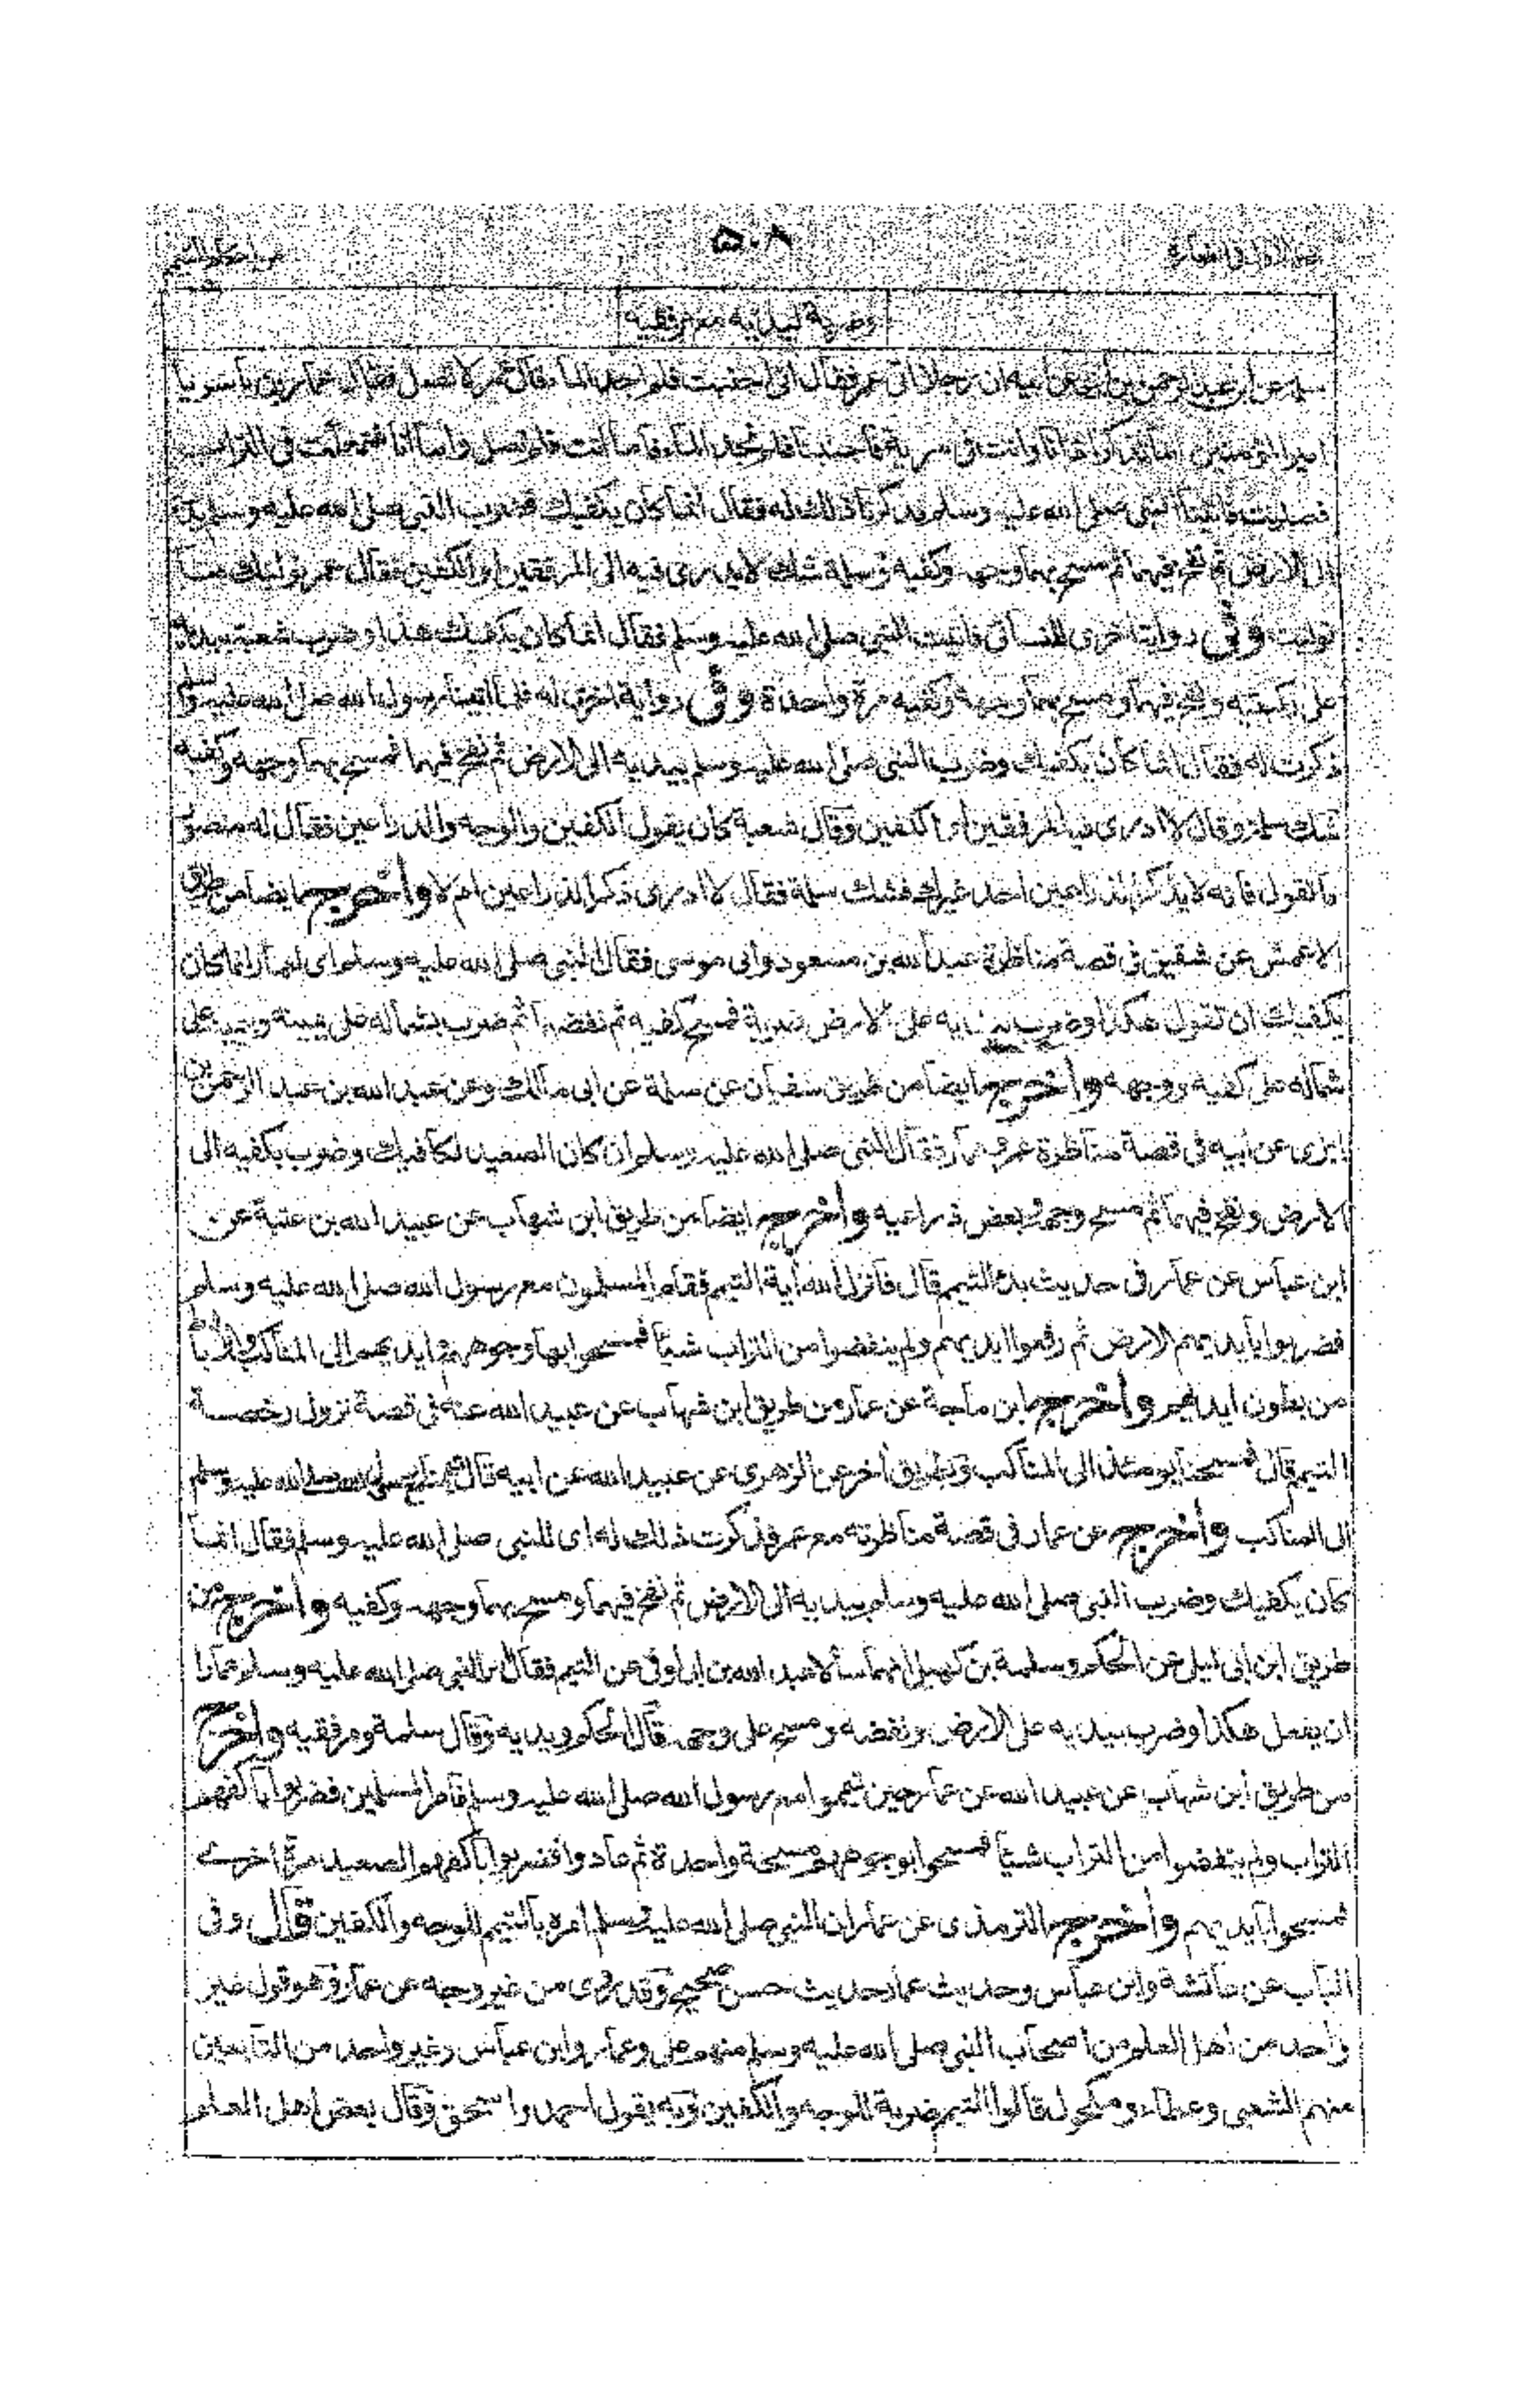 ۵۰۸
وضربة ليديه مع مرفقيه
سلمة عن ابن عبد الرحمن بن ابزى عن ابيه ان رجلا اتى عمر فقال انى اجنبت فلم اجد الماء فقال عمر لا تصل فقال عمار بن ياسر يا
امير المؤمنين اما تذكر اذ انا وانت فى سرية فاجنبنا فلم نجد الماء فاما انت فلم تصل واما انا فتمعكت فى التراب
فصليت فاتينا النبى صلى الله عليه وسلم فذكرنا ذلك له فقال انما كان يكفيك فضرب النبى صلى الله عليه وسلم يديه
الى الارض ثم نفخ فيهما ثم مسح بهما وجهه وكفيه وسلمة شك لا يدرى فيه الى المرفقين او الكفين فقال عمر نوليك ما
توليت وفى رواية اخرى للنسائى فاتيت النبى صلى الله عليه وسلم فقال انما كان يكفيك هكذا وضرب شعبة بيديه
على ركبتيه ونفخ فيهما ومسح بهما وجهه وكفيه مرة واحدة وفى رواية اخرى له فلما اتينا رسول الله صلى الله عليه وسلم
ذكرت له فقال انما كان يكفيك وضرب النبى صلى الله عليه وسلم بيديه الى الارض ثم نفخ فيهما فمسح بهما وجهه وكفيه
شك سلمة وقال لا ادرى فيه المرفقين او الكفين وقال شعبة كان يقول الكفين والوجه والذراعين فقال له منصور
ما تقول فانه لا يذكر الذراعين احد غيرك فشك سلمة فقال لا ادرى ذكر الذراعين ام لا واخرج ايضا من طريق
الاعمش عن شقيق فى قصة مناظرة عبد الله بن مسعود وابى موسى فقال النبى صلى الله عليه وسلم اى لعمار انما كان
يكفيك ان تقول هكذا وضرب بيديه على الارض ضربة فمسح كفيه ثم نفضهما ثم ضرب بشماله على يمينه وبيمينه على
شماله على كفيه ووجهه واخرج ايضا من طريق سفيان عن سلمة عن ابى مالك وعن عبد الله بن عبد الرحمن بن
ابزى عن ابيه فى قصة مناظرة عمر وعمار فقال النبى صلى الله عليه وسلم ان كان الصعيد لكافيك وضرب بكفيه الى
الارض ونفخ فيهما ثم مسح وجهه وبعض ذراعيه واخرج ايضا من طريق ابن شهاب عن عبيد الله بن عتبة عن
ابن عباس عن عمار فى حديث بدء التيمم قال فانزل الله آية التيمم فقام المسلمون مع رسول الله صلى الله عليه وسلم
فضربوا بايديهم الارض ثم رفعوا ايديهم ولم ينفضوا من التراب شيئا فمسحوا بها وجوههم وايديهم الى المناكب والآباط
من بطون ايديهم واخرج ابن ماجة عن عمار من طريق ابن شهاب عن عبيد الله عنه فى قصة نزول رخصة
التيمم قال فمسحنا يومئذ الى المناكب وبطريق اخر عن الزهرى عن عبيد الله عن ابيه قال تيممنا مع رسول الله صلى الله عليه وسلم
الى المناكب واخرج عن عمار فى قصة مناظرته مع عمر فذكرت ذلك له اى للنبى صلى الله عليه وسلم فقال انما
كان يكفيك وضرب النبى صلى الله عليه وسلم بيديه الى الارض ثم نفخ فيهما ومسح بهما وجهه وكفيه واخرج من
طريق ابن ابى ليلى عن الحكم وسلمة بن كهيل انهما سألا عبد الله بن ابى اوفى عن التيمم فقال امر النبى صلى الله عليه وسلم عمارا
ان يفعل هكذا وضرب بيديه على الارض ونفضه ومسح على وجهه قال الحكم ويديه وقال سلمة ومرفقيه واخرج
من طريق ابن شهاب عن عبيد الله عن عمار حين تيمموا مع رسول الله صلى الله عليه وسلم فامر المسلمين فضربوا باكفهم
التراب ولم ينفضوا من التراب شيئا فمسحوا بوجوههم مسحة واحدة ثم عادوا فضربوا باكفهم الصعيد مرة اخرى
فمسحوا بايديهم واخرج الترمذى عن عمار ان النبى صلى الله عليه وسلم امره بالتيمم للوجه والكفين قال وفى
الباب عن عائشة وابن عباس وحديث عمار حديث حسن صحيح وقد روى من غير وجه عن عمار وهو قول غير
واحد من اهل العلم من اصحاب النبى صلى الله عليه وسلم منهم على وعمار وابن عباس وغير واحد من التابعين
منهم الشعبى وعطاء ومكحول قالوا التيمم ضربة للوجه والكفين وبه يقول احمد واسحق وقال بعض اهل العلم